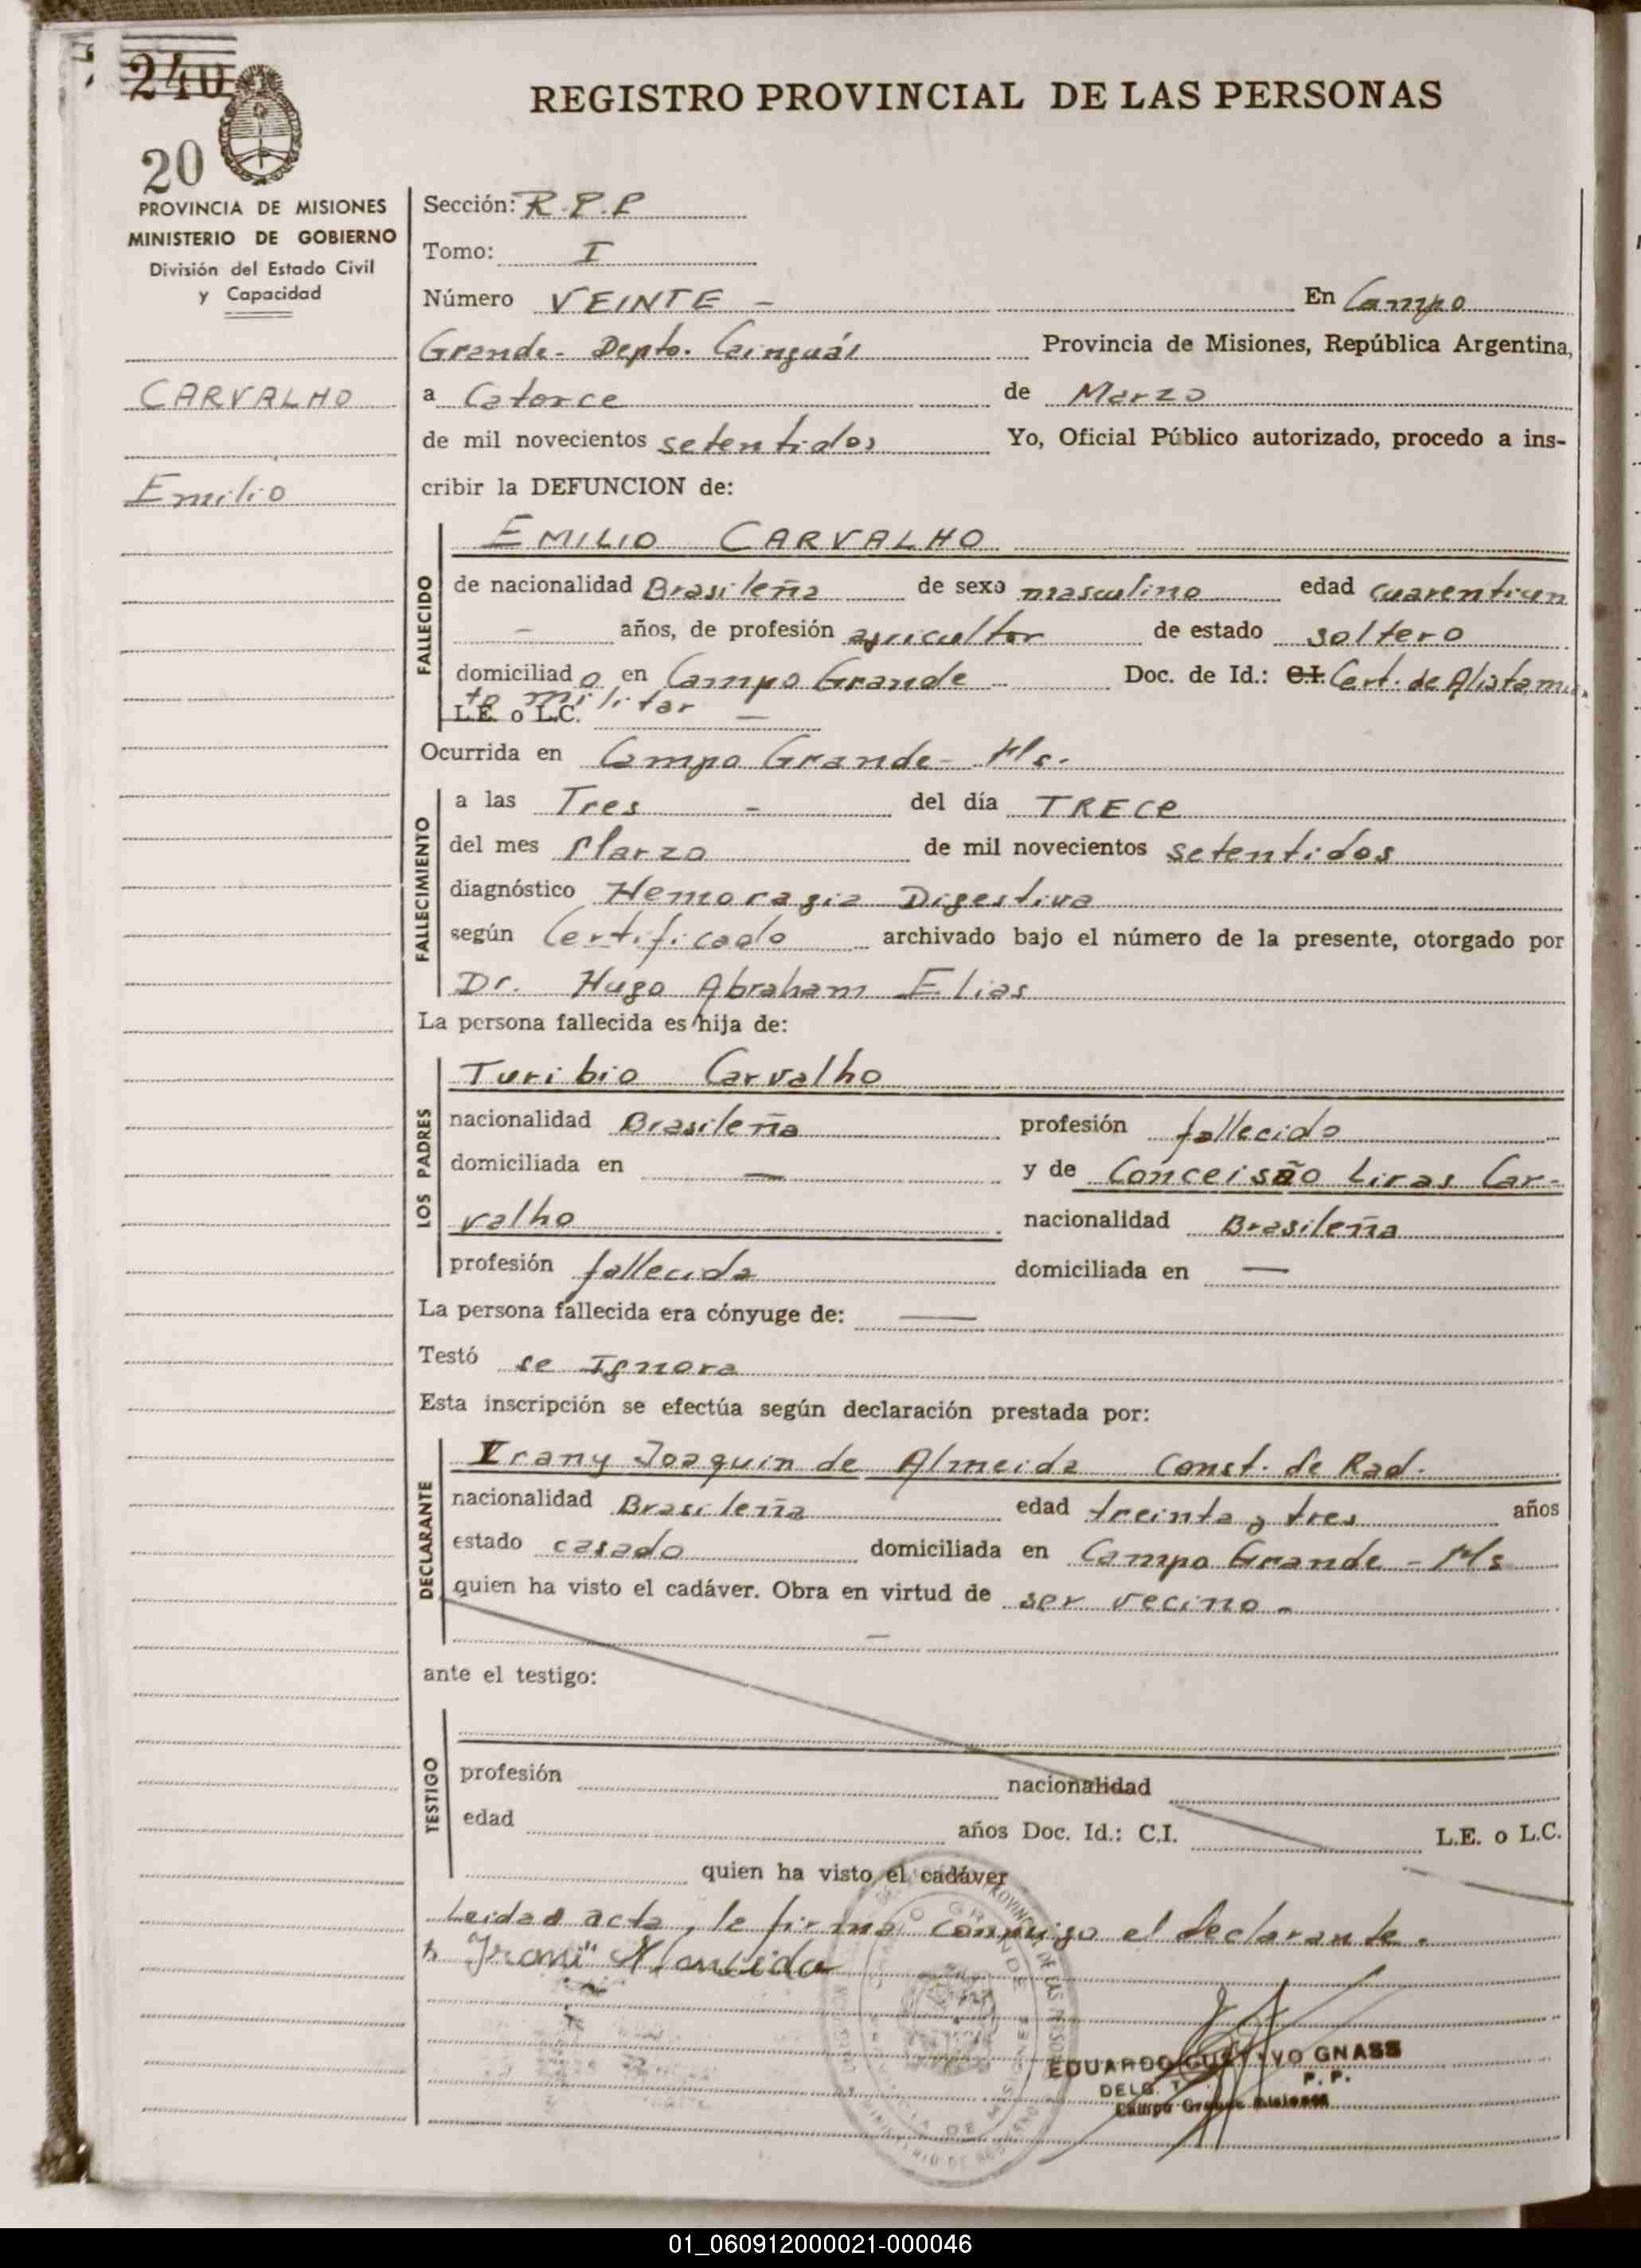 240
20
REGISTRO PROVINCIAL DE LAS PERSONAS
PROVINCIA DE MISIONES
MINISTERIO DE GOBIERNO
División del Estado Civil
y Capacidad
CARVALHO
Emilio
Sección: R.P.P
Tomo: I
Número VEINTE - En Campo
Grande- Depto. Cainguás Provincia de Misiones, República Argentina,
a Catorce de Marzo
de mil novecientos setentidos Yo, Oficial Público autorizado, procedo a ins-
cribir la DEFUNCION de:
FALLECIDO
EMILIO CARVALHO
de nacionalidad Brasileña de sexo masculino edad cuarentiun
- años, de profesión agricultor de estado soltero
domiciliado en Campo Grande - Doc. de Id.: CI Cert. de Alistami
to militar
L.E. o L.C. -
Ocurrida en Campo Grande- Ms.
FALLECIMIENTO
a las Tres - del día TRECE
del mes Marzo de mil novecientos setentidos
diagnóstico Hemoragia Digestiva
según Certificado archivado bajo el número de la presente, otorgado por
Dr. Hugo Abraham Elias
La persona fallecida es hija de:
LOS PADRES
Turibio Carvalho
nacionalidad Brasileña profesión fallecido
domiciliada en — y de Conceisão Liras Car-
valho nacionalidad Brasileña
profesión fallecida domiciliada en —
La persona fallecida era cónyuge de: —
Testó se Ignora
Esta inscripción se efectúa según declaración prestada por:
DECLARANTE
Irany Joaquin de Almeida Const. de Rad.
nacionalidad Brasileña edad treinta y tres años
estado casado domiciliada en Campo Grande - Ms
quien ha visto el cadáver. Obra en virtud de ser vecino -
-
ante el testigo:
TESTIGO
profesión nacionalidad
edad años Doc. Id.: C.I. L.E. o L.C.
quien ha visto el cadáver
Leidad acta, la firma conmigo el declarante.
EDUARDO GUSTAVO GNASS
DELG. P. P.
Campo Grande Misiones
01_060912000021-000046